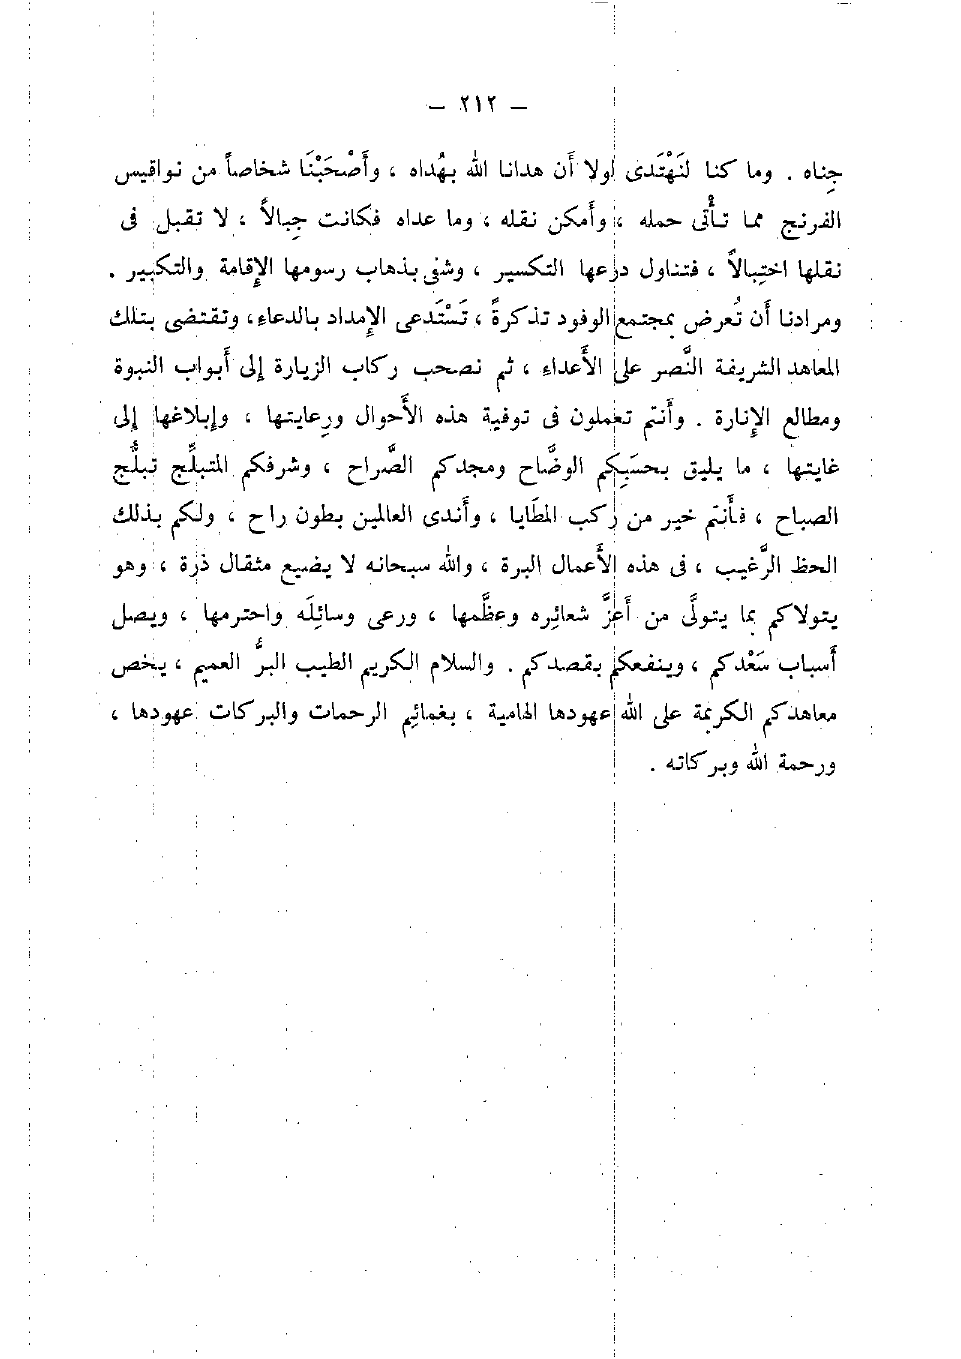 — ٢١٢ —
جِناه . وما كنا لنَهْتَدى لولا أن هدانا الله بهُداه ، وأَصْحَبْنَا شخاصاً من نواقيس
الفرنج مما تأَتَّى حمله ، وأَمكن نقله ، وما عداه فكانت جِبالاً ، لا تقبل فى
نقلها اختِبالاً ، فتناول درعها التكسير ، وشفى بذهاب رسومها الإِقامة والتكبير .
ومرادنا أَن تُعرض بمجتمع الوفود تذكرةً ، تَسْتَدعى الإِمداد بالدعاء، وتقتضى بتلك
المعاهد الشريفة النَّصر على الأَعداء ، ثم نصحب ركاب الزيارة إِلى أَبواب النبوة
ومطالع الإِنارة . وأَنتم تعملون فى توفية هذه الأَحوال ورعايتها ، وإِبلاغها إِلى
غايتها ، ما يليق بحسَبِكم الوضَّاح ومجدكم الصَّراح ، وشرفكم المتبلِّج تبلُّج
الصباح ، فأَنتم خير من ركب المطَايا ، وأَندى العالمين بطون راح ، ولكم بذلك
الحظ الرَّغيب ، فى هذه الأَعمال البرة ، والله سبحانه لا يضيع مثقال ذرة ، وهو
يتولاكم بما يتولَّى من أَعزَّ شعائِره وعظَّمها ، ورعى وسائِلَه واحترمها ، ويصل
أَسباب سَعْدكم ، وينفعكم بقصدكم . والسلام الكريم الطيب البرُّ العميم ، يخص
معاهدكم الكريمة على الله عهودها الهامية ، بغمائِم الرحمات والبركات عهودها ،
ورحمة الله وبركاته .